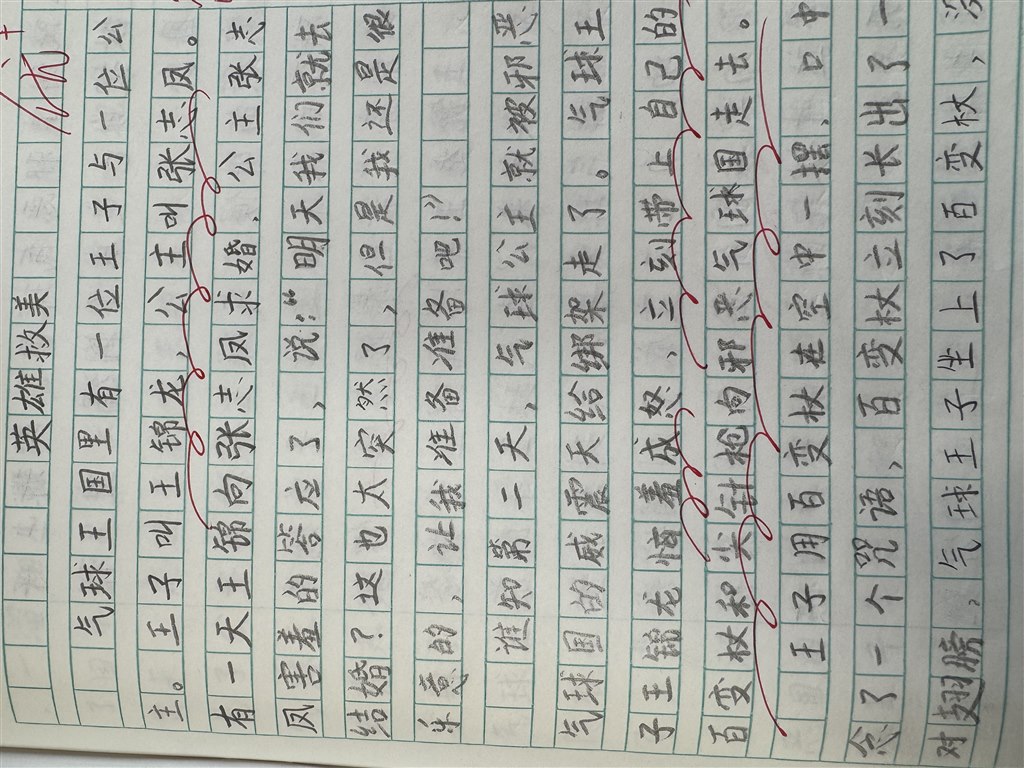 英雄救美
气球王国里有一位王子与一位公
主。王子叫王锦龙,公主叫张志凤。
有一天王锦向张志凤求婚,公主张志
凤害羞的答应了,说:“明天我们就去
结婚?这也太突然了,但是我还是很
乐意的,让我准备准备吧!”
谁知第二天,气球公主就被邪恶
气球国的威震天给绑架走了。气球王
子王锦龙悔羞成怒,立刻带上自己的
百变杖和尖针枪向邪恶气球国走去。
王子用百变杖在空中一摆,口中
念了一个咒语,百变杖立刻长出了一
对翅膀,气球王子坐上了百变杖,没